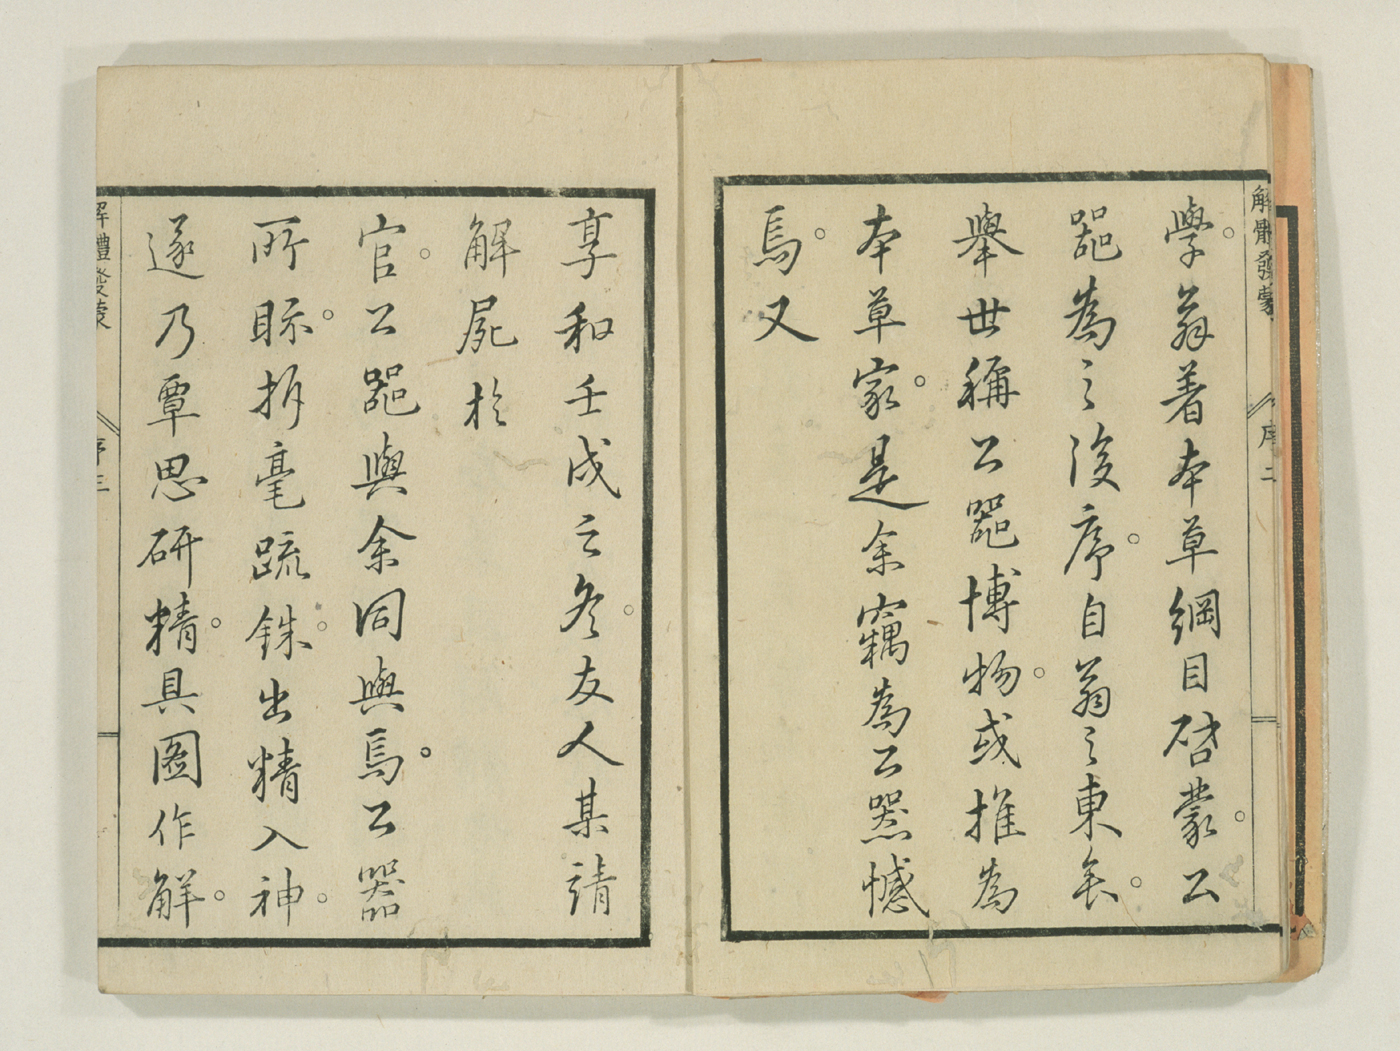 解體發蒙 序二
學。翁著本草綱目啓蒙。公
器為之後序。自翁之東矣。
舉世稱公器博物。或推為
本草家。是余竊為公器憾
焉。又
享和壬戌之冬。友人某請
解屍於
官。公器與余同與焉。公器
所眎。拆毫疏銖。出精入神。
遂乃覃思研精。具圖作解。
解體發蒙 序三